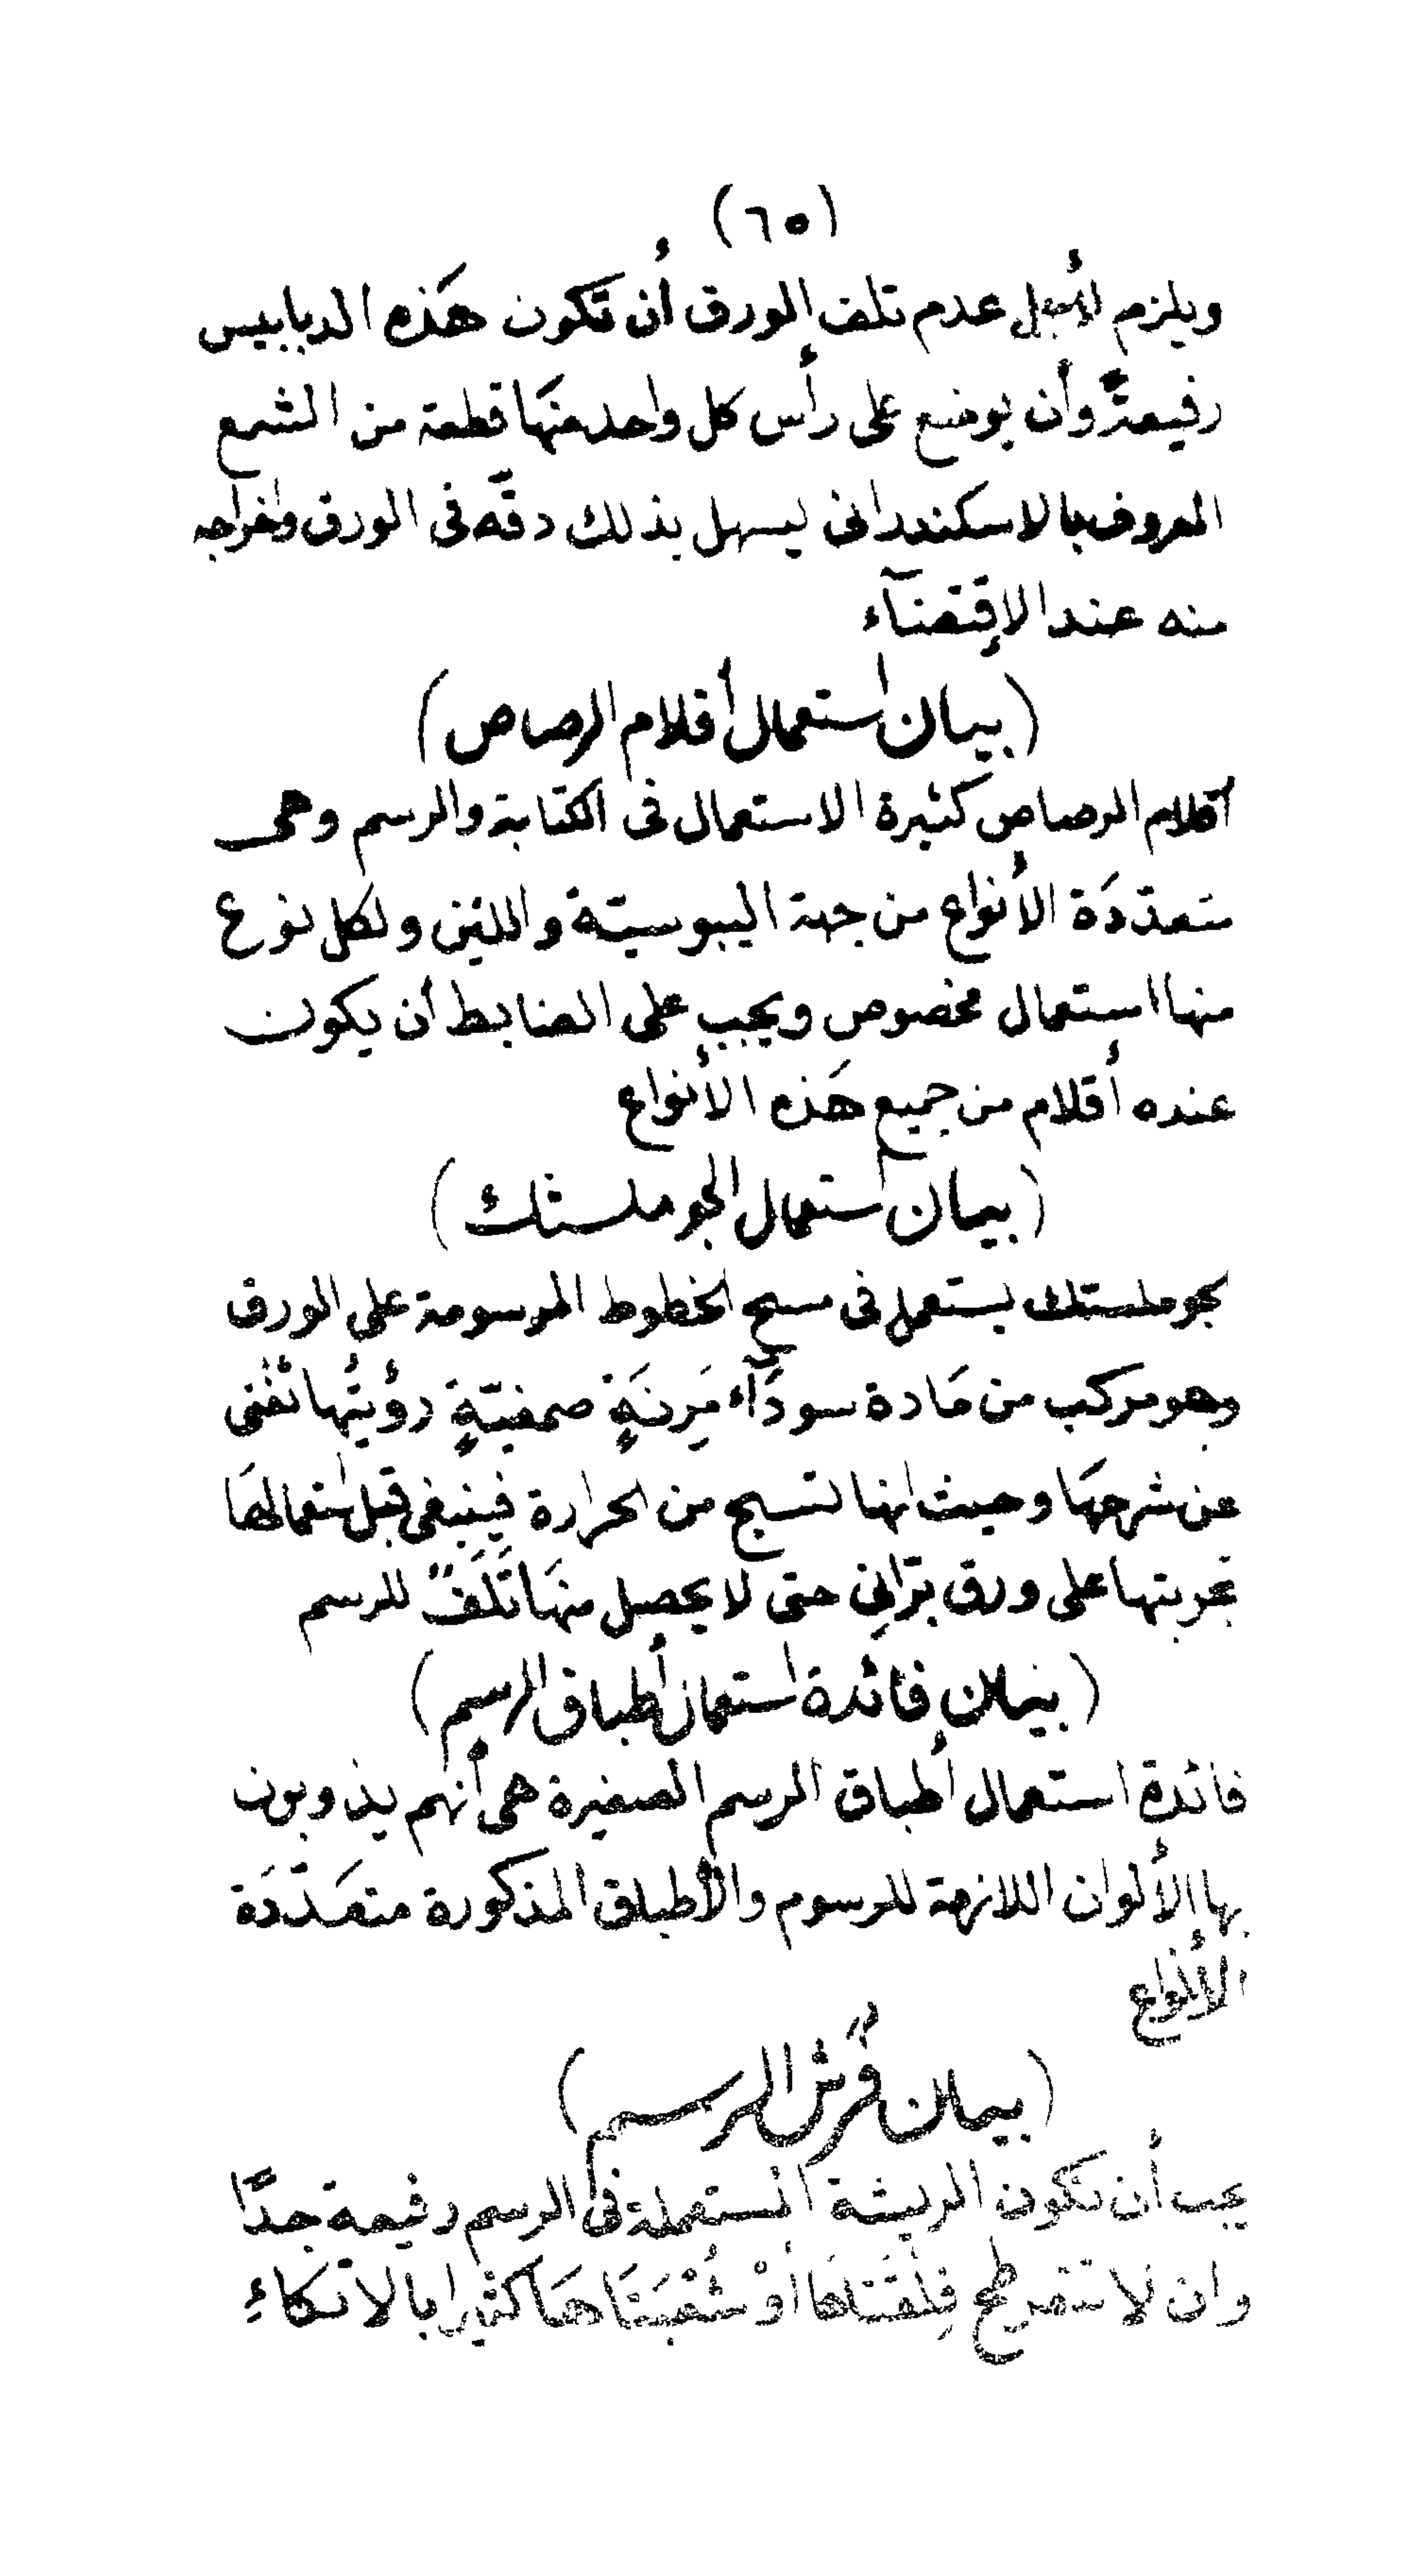 (٦٥)
ويلزم لأجل عدم تلف الورق أن تكون هَذه الدبابيس
رفيعةً وأن يوضع على رأس كل واحد منهَا قطعة من الشمع
المعروف بالاسكندرانى ليسهل بذلك دقّه فى الورق واخراجه
منه عند الإقتضآء
(بيان استعمال أقلام الرصاص)
أقلام الرصاص كثيرة الاستعمال فى الكتابة والرسم وهى
متعدّدَة الأنواع من جهة اليبوسيّة واللين ولكل نوع
منها استعمال مخصوص ويجب على الضابط أن يكون
عنده أقلام من جميع هَذه الأنواع
(بيان استعمال الجوملستك)
لجوملستك يستعمل فى مسح الخطوط المرسومة على الورق
وهو مركب من مَادة سودَآء مَرِنَةٍ صمغيّةٍ رؤيتُها تُغْنى
عن شرحهَا وحيث انها تسيح من الحرارة فينبغى قبل استعمالهَا
تجربتها على ورق برّانى حتى لا يحصل منهَا تَلَفٌ للرسم
(بيان فائدة استعمال أطباق الرسم)
فائدة استعمال أطباق الرسم الصغيرة هى أنهم يذوبون
بها الألوان اللازمة للرسوم والأطباق المذكورة متعَدّدَة
الأنواع
(بيان فُرش الرسم)
يجب أن تكون الريشة المستعملة فى الرسم رفيعة جدًّا
وان لا تتفرطح فِلْقَتاهَا أوْ شُعْبَتَاهَا كثيرا بالاتكاءِ